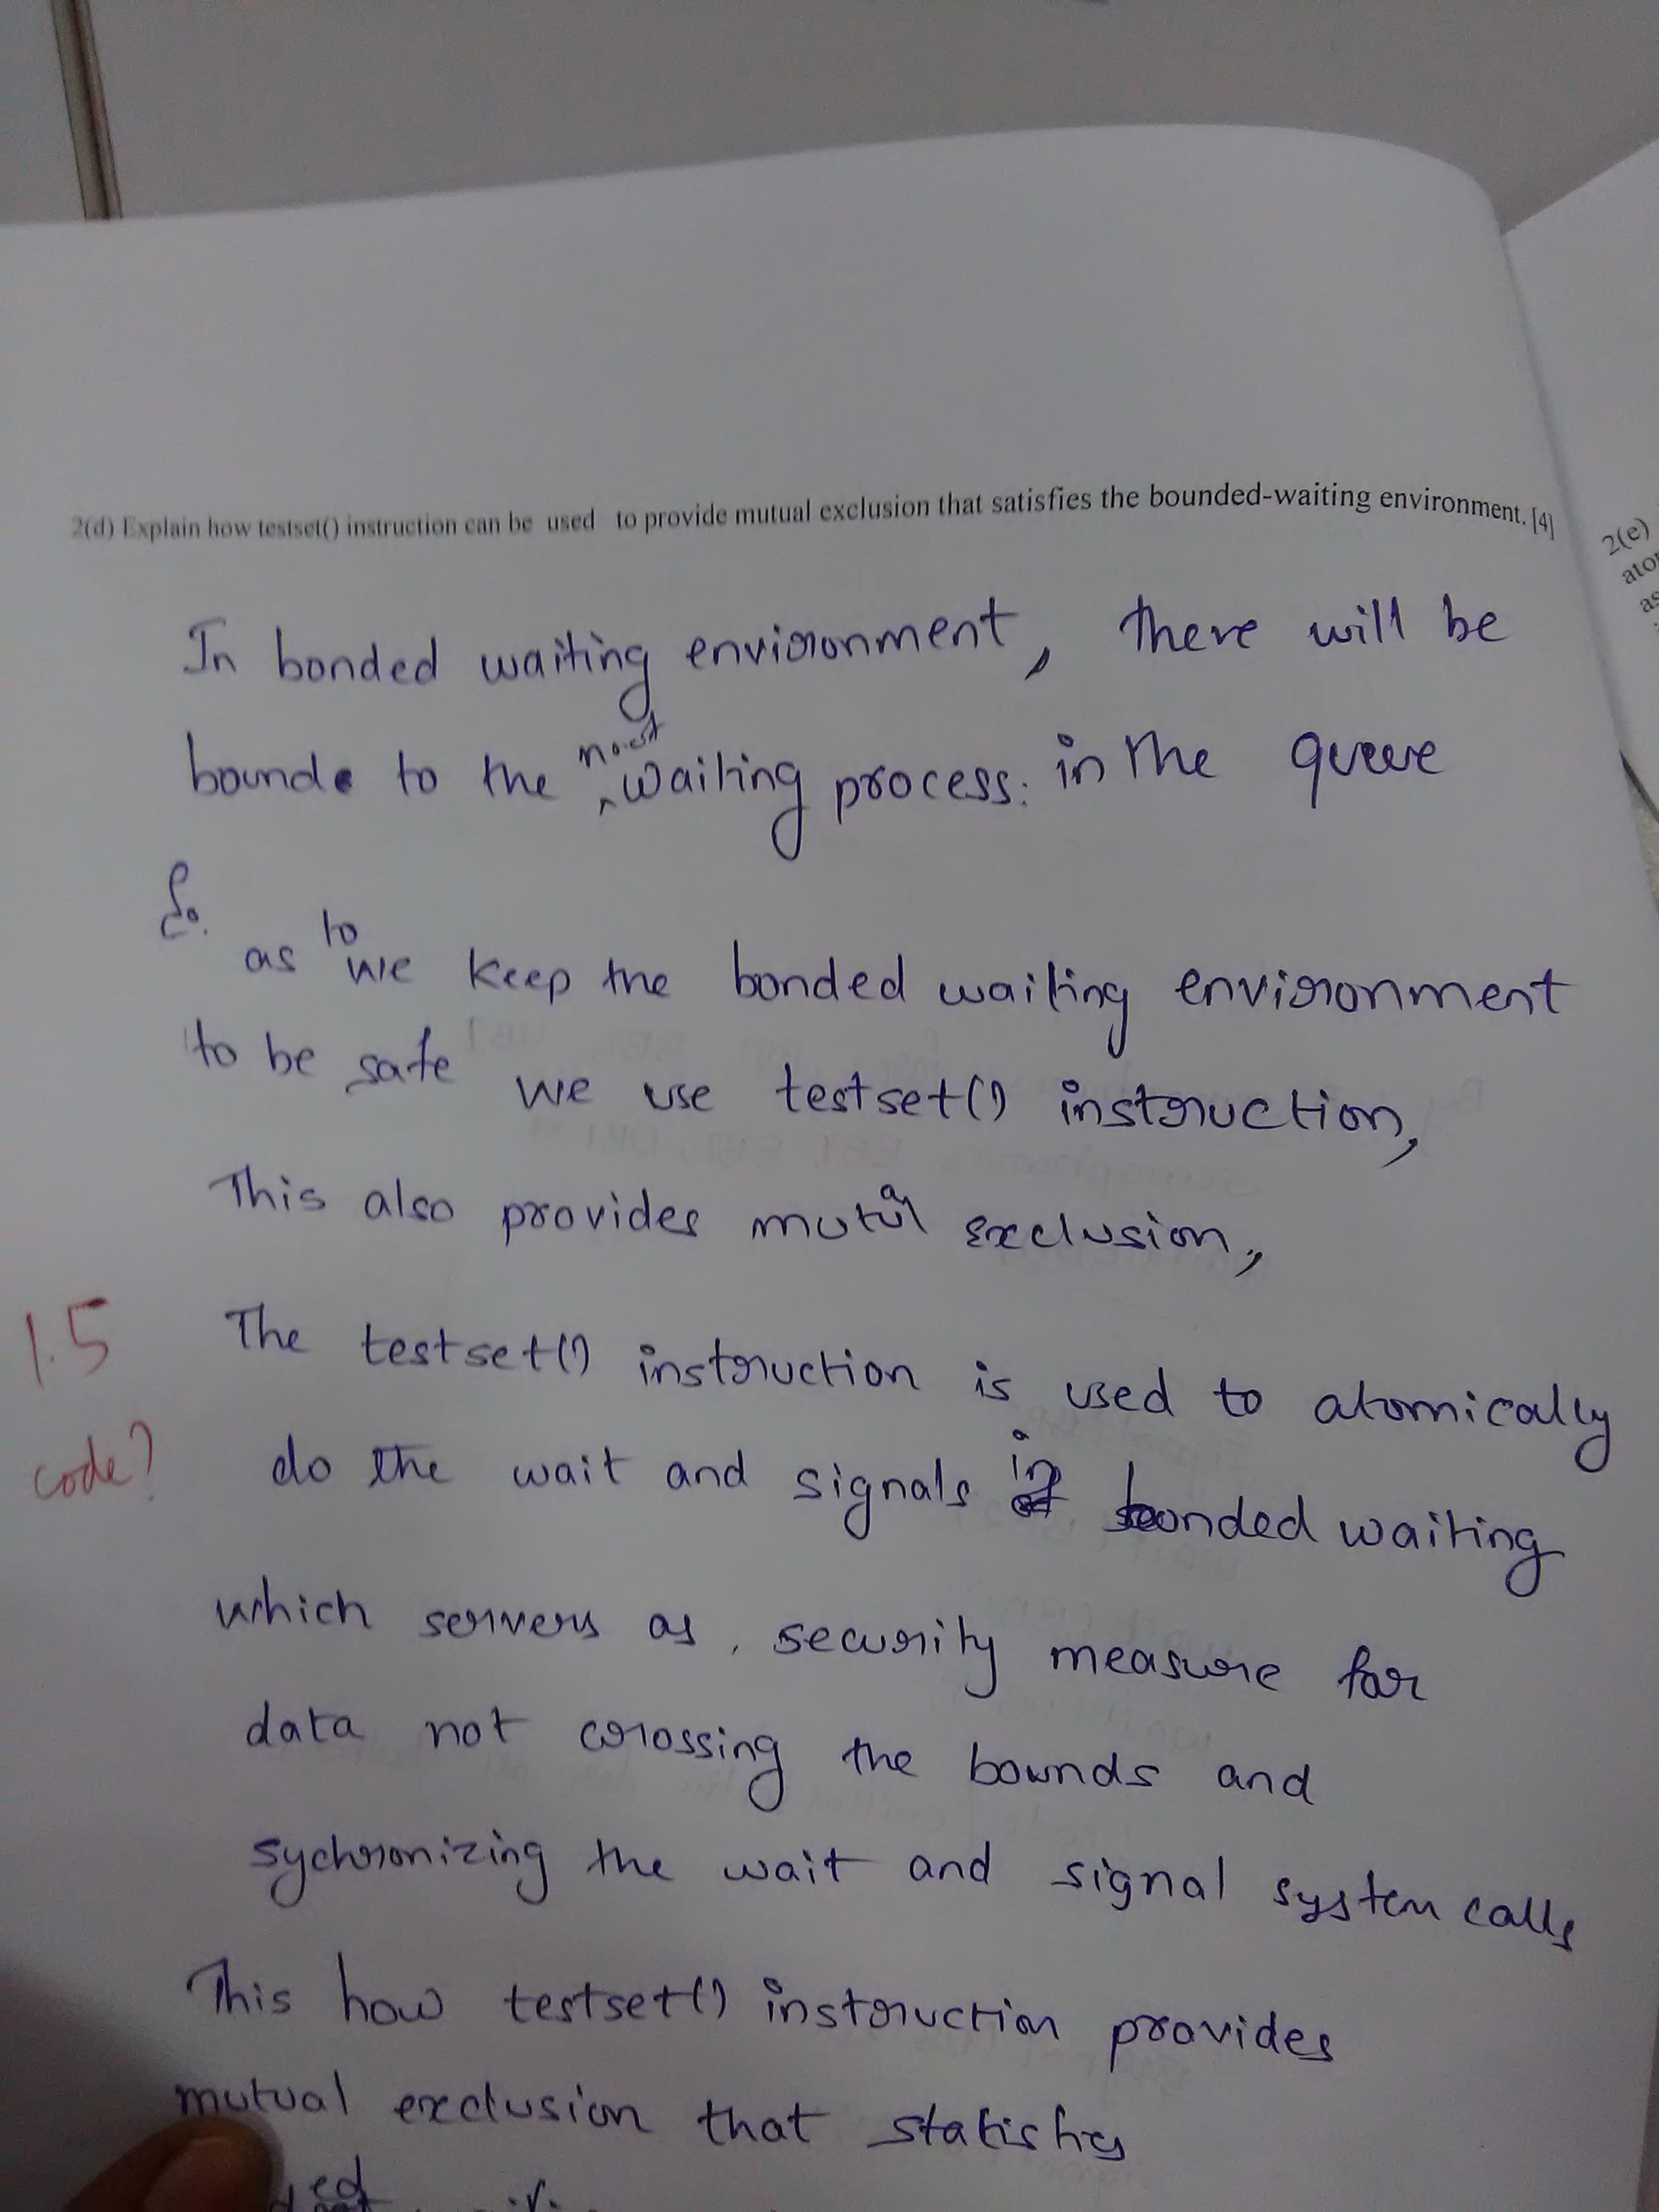 2(d) Explain how testset() instruction can be used to provide mutual exclusion that satisfies the bounded-waiting environment. [4]
2(e)
ato
as
In bonded waiting environment, there will be
bounde to the most waiting process. in the queue
So.
as to we keep the bonded waiting environment
to be safe we use testset() instruction,
This also provides mutual exclusion,
1.5
The testset() instruction is used to atomically
code?
do the wait and signals in bonded waiting
which servers as, security measure for
data not crossing the bounds and
sychronizing the wait and signal system calls
This how testset() instruction provides
mutual exclusion that statisfies